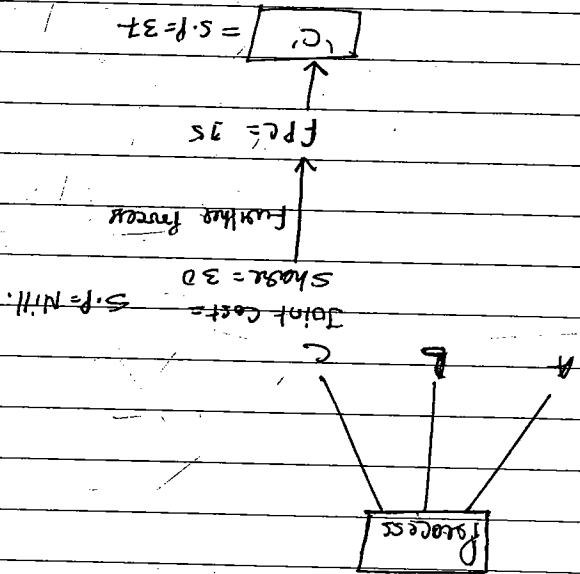 Process
A B C
Joint Cost = S.P = Nill.
Share = 30
Further Process
FPC = 15
'C' = S.P = 37